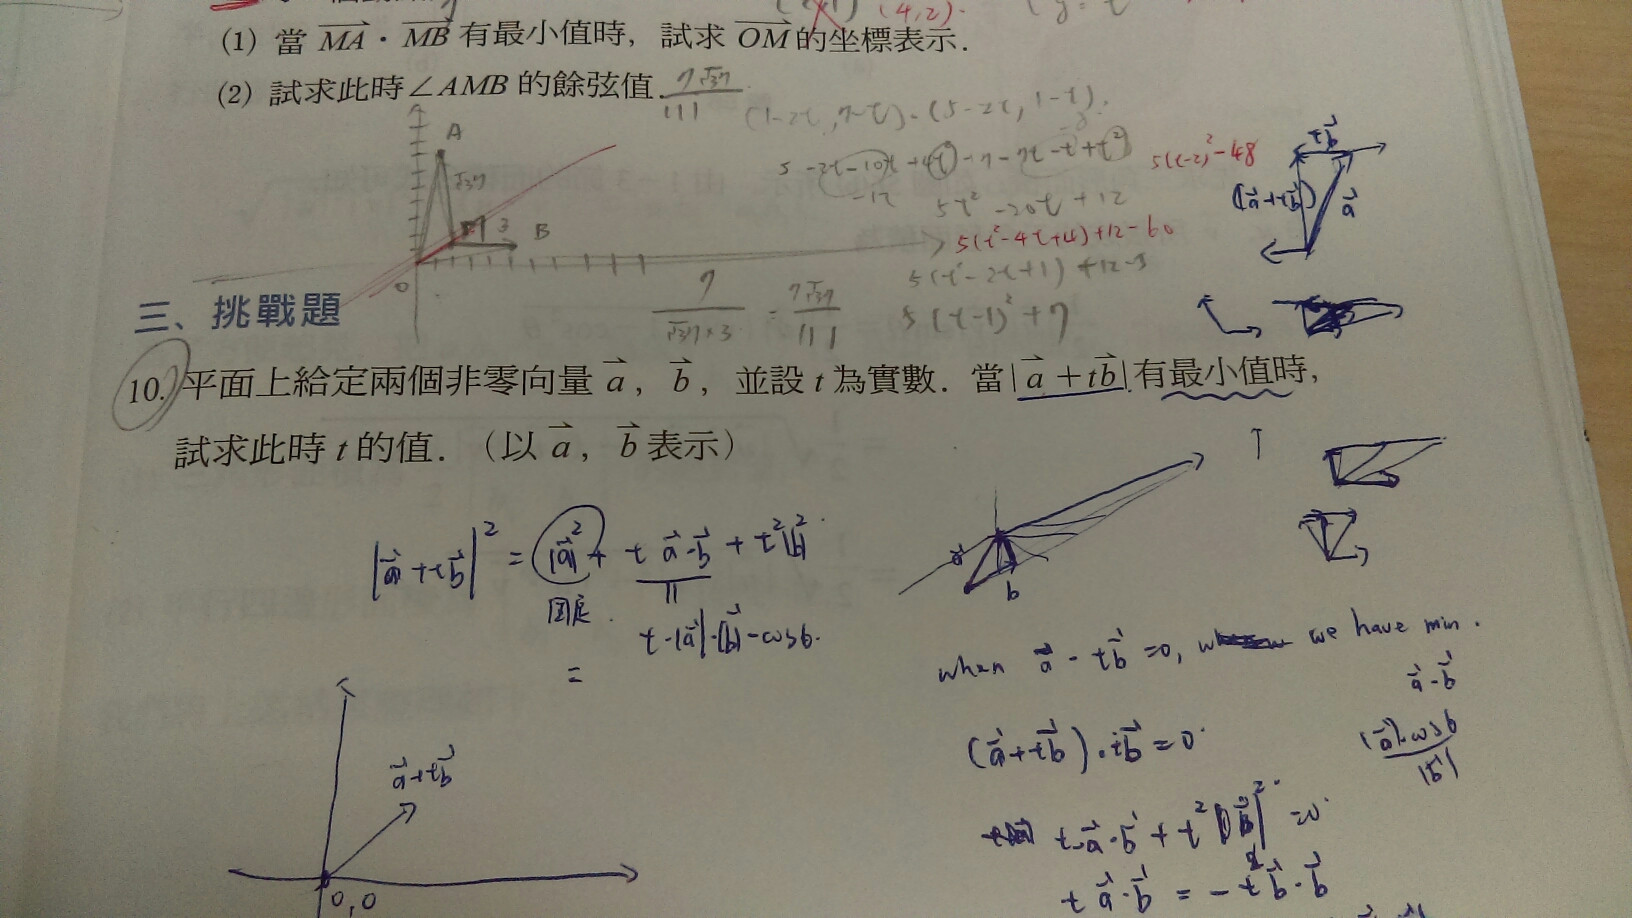 (4,2).
(1) 當 MA · MB 有最小值時，試求 OM 的坐標表示．
(2) 試求此時∠AMB 的餘弦值． 7√37/111
(1-2t, 7-t)·(5-2t, 1-t).
A
√37
3
B
0
5-2t-10t+4t²+7-7t-t+t²
-12t
5t²-20t+12
5(t-2)²-48
5(t²-4t+4)+12-60
5(t²-2t+1)+12-5
5(t-1)²+7
7/(√37×3) = 7√37/111
tb
(a+tb)
a
三、挑戰題
10. 平面上給定兩個非零向量 a，b，並設 t 為實數．當 |a + tb| 有最小值時，
試求此時 t 的值．（以 a，b 表示）
|a+tb|² = |a|² + t a·b + t²|b|²
固定.
t·|a|·|b|·cosθ.
=
a
b
when a · tb = 0, we have min.
a·b
(a+tb)·tb = 0
|a|·cosθ/|b|
t·a·b + t²|b|² = 0
t a·b = -t² b·b
a+tb
0,0